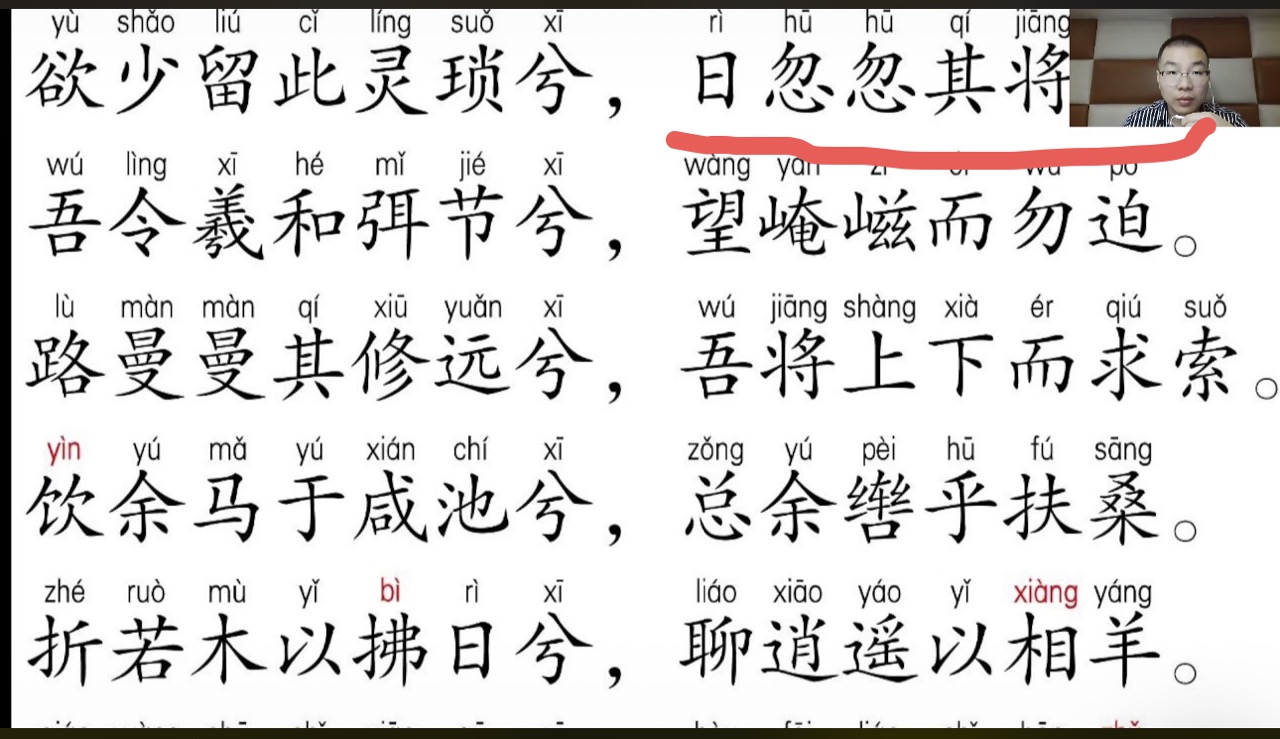 yù shǎo liú cǐ líng suǒ xī rì hū hū qí jiāng
欲少留此灵琐兮，日忽忽其将
wú lìng xī hé mǐ jié xī wàng yān
吾令羲和弭节兮，望崦嵫而勿迫。
lù màn màn qí xiū yuǎn xī wú jiāng shàng xià ér qiú suǒ
路曼曼其修远兮，吾将上下而求索。
yìn yú mǎ yú xián chí xī zǒng yú pèi hū fú sāng
饮余马于咸池兮，总余辔乎扶桑。
zhé ruò mù yǐ bì rì xī liáo xiāo yáo yǐ xiàng yáng
折若木以拂日兮，聊逍遥以相羊。